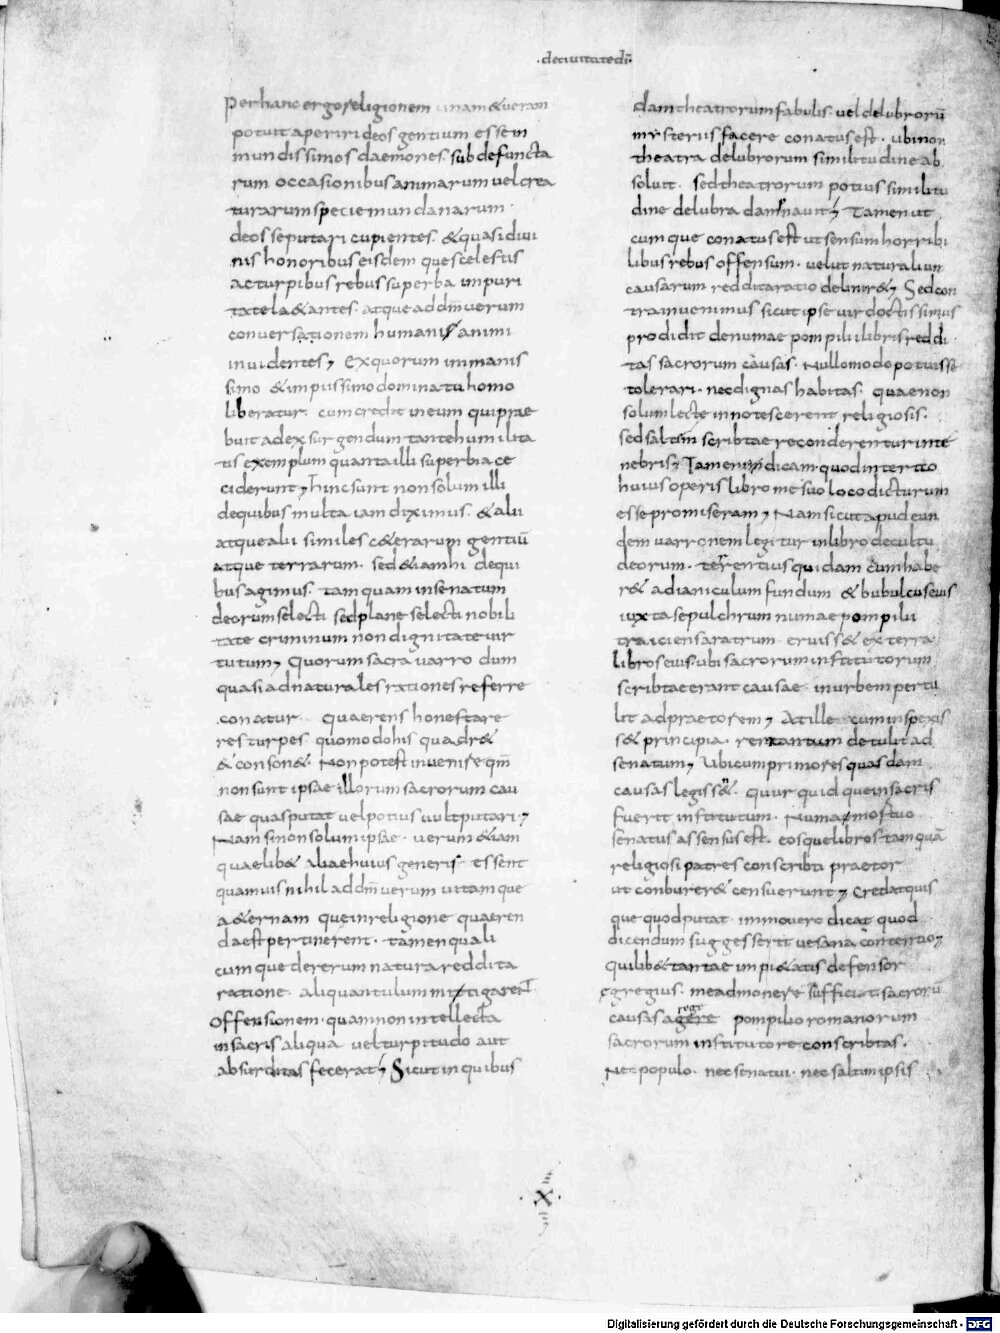 ·deciuitatedī·
Perhanc ergo religionem unam & veram
potuit aperiri deos gentium esse in
mundissimos daemones. sub defuncta
rum occasionibus animarum vel crea
turarum specie mundanarum·
deos se putari cupientes. & quasi diui
nis honoribus eisdem que scelestis
ac turpibus rebus superba inpuri
tate la&antes. atque ad dm̄ verum
conversationem humanis animi
inuidentes; Ex quorum inmanis
simo & impiissimo dominatu homo
liberatur. cum credit in eum qui prae
buit ad exsurgendum tante humilita
tis exemplum quanta illi superbia ce
ciderunt; hinc sunt non solum illi
de quibus multa iam diximus. & alii
atque alii similes c&erarum gentiū
atque terrarum. sed & iam hi de qui
bus agimus. tamquam in senatum
deorum selecti sed plane selecti nobili
tate criminum non dignitate uir
tutum; Quorum sacra uarro dum
quasi ad naturales rationes referre
conatur quaerens honestare
res turpes. quomodo his quadr&
& conson&. Non potest invenire qm̄
non sunt ipsae illorum sacrorum cau
sae quas putat vel potius uult putari;
Nam si non solum ipsae. verum & iam
quaelib& aliae huius generis essent
quamuis nihil ad dm̄ verum uitamque
a&ernam que in religione quaeren
da est pertinerent. tamen quali
cumque de rerum natura reddita
ratione. aliquantulum mitigarent
offensionem. quam non intellecta
in sacris aliqua vel turpitudo aut
absurditas fecerat; Sicut in quibus
dam theatrorum fabulis. vel delubrorū
mysteriis facere conatus est. ubi non
theatra delubrorum similitudine ab
soluit. sed theatrorum potius similitu
dine delubra damnauit; Tamen ut
cumque conatus est ut sensum horribi
libus rebus offensum. velut naturalium
causarum reddita ratio delinir&; Sed con
tra inuenimus sicut ipse vir doctissimus
prodidit de numae pompilii libris reddi
tas sacrorum causas. Nullo modo potuisse
tolerari. nec dignas habitas. quae non
solum lecte innotescerent religiosis.
sed saltim scribtae reconderentur in te
nebris; Iam enim dicam quod in tertio
huius operis libro me suo loco dicturum
esse promiseram; Nam sicut apud eun
dem uarronem legitur in libro de cultu
deorum. terentius quidam cum habe
r& ad ianiculum fundum & bubulcus eius
iuxta sepulchrum numae pompilii
traiciens aratrum. eruiss& ex terra
libros eius. ubi sacrorum institutorum
scribtae erant causae. in urbem pertu
lit ad praetorem; At ille cum inspexis
s& principia. rem tantum detulit ad
senatum; Ubi cum primores quasdam
causas legiss&. quur quid que in sacris
fuerit institutum. Numa mortuo
senatus assensus est. eosque libros tamquā
religiosi patres conscribti praetor
ut conburer& censuerunt; Credat quis
que quod putat. immo uero dicat quod
dicendum suggesserit vesana contentio;
quilib& tantae impi&atis defensor
egregius. me admonere sufficiat. sacrorū
causas a rege pompilio romanorum
sacrorum institutore conscribtas.
Nec populo. nec senatui. nec saltim ipsis
·X·
Digitalisierung gefördert durch die Deutsche Forschungsgemeinschaft - DFG